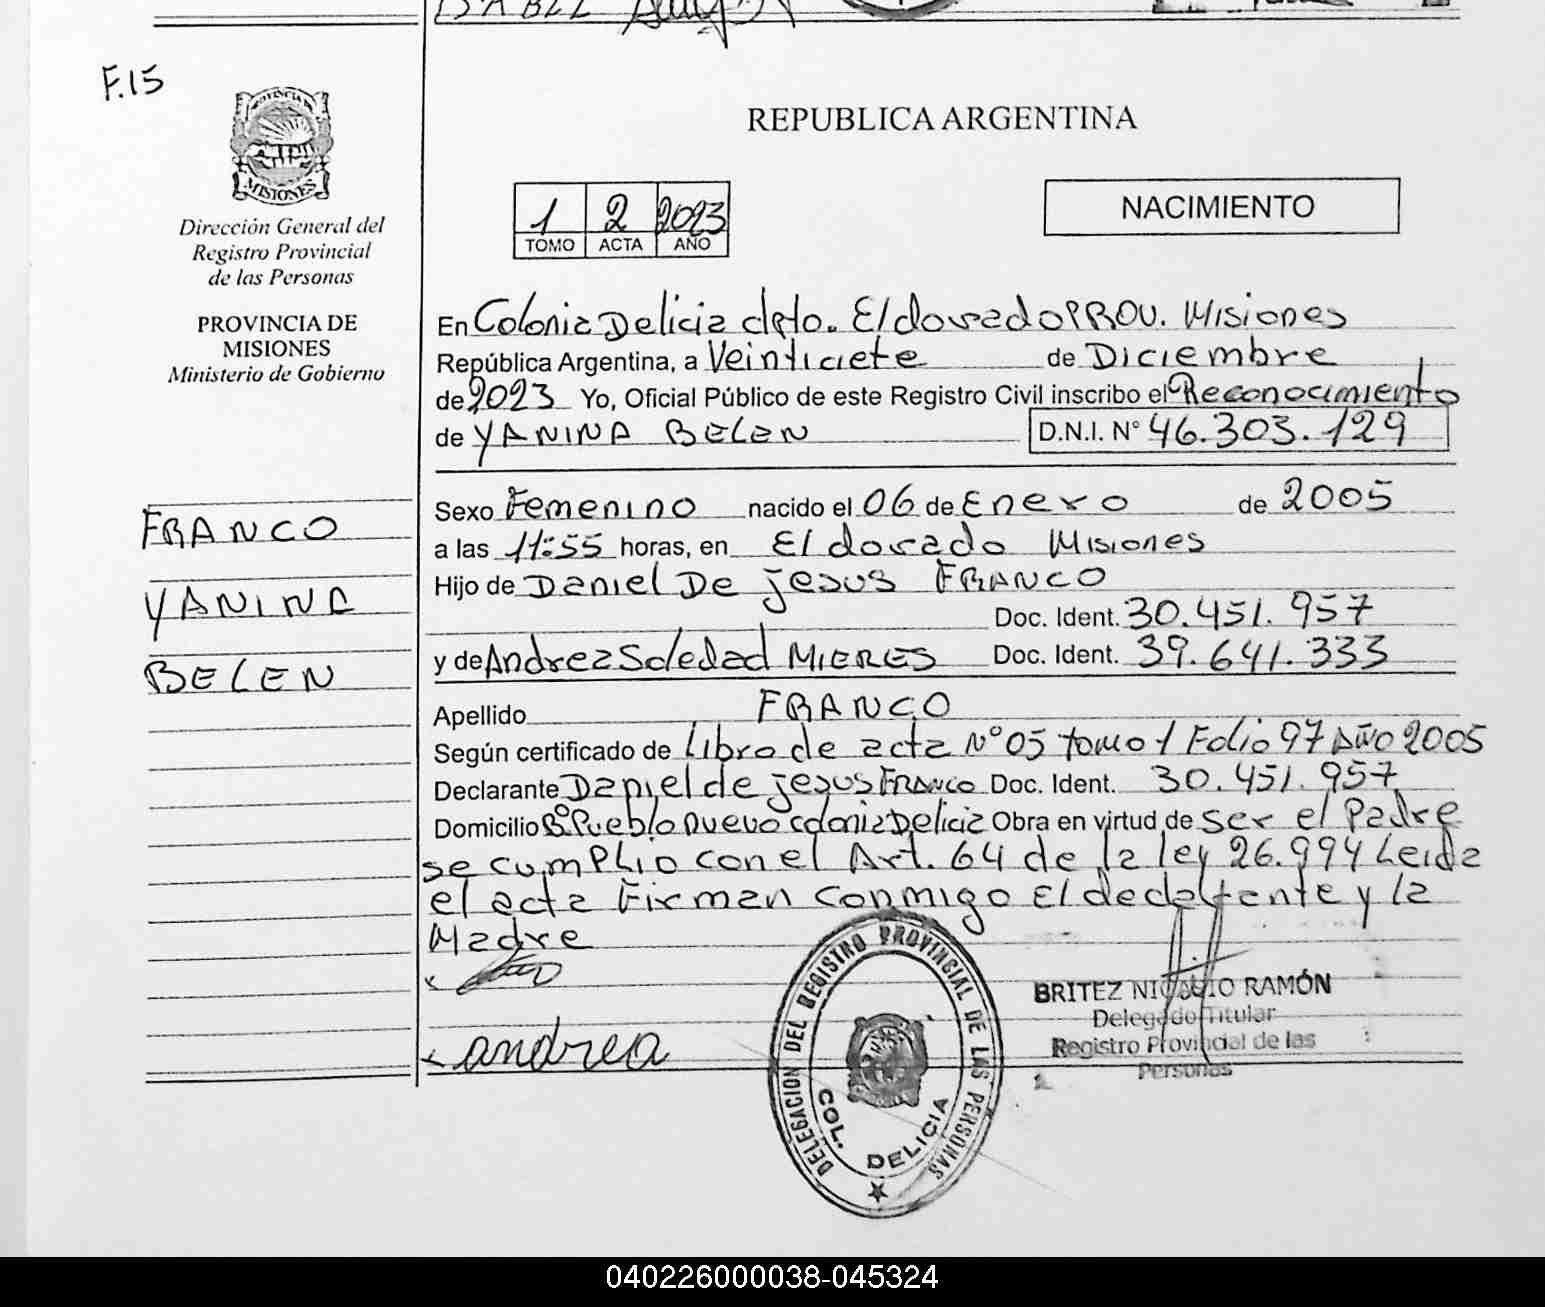 ISABEL
F.15
PROVINCIA DE
MISIONES
Dirección General del
Registro Provincial
de las Personas
PROVINCIA DE
MISIONES
Ministerio de Gobierno
FRANCO
YANINA
BELEN
REPUBLICA ARGENTINA
1 2 2023
TOMO ACTA AÑO
NACIMIENTO
En Colonia Delicia dpto. Eldorado PROV. Misiones
República Argentina, a Veinticiete de Diciembre
de 2023 Yo, Oficial Público de este Registro Civil inscribo el Reconocimiento
de YANINA BELEN D.N.I. N° 46.303.129
Sexo Femenino nacido el 06 de Enero de 2005
a las 11:55 horas, en Eldorado Misiones
Hijo de Daniel De jesus FRANCO
Doc. Ident. 30.451.957
y de Andrea Soledad MIERES Doc. Ident. 39.641.333
Apellido FRANCO
Según certificado de Libro de acta N° 05 tomo 1 Folio 97 Año 2005
Declarante Daniel de jesus FRANCO Doc. Ident. 30.451.957
Domicilio B° Pueblo nuevo colonia Delicia Obra en virtud de ser el Padre
se cumplio con el Art. 64 de la ley 26.994 Leida
el acta Firman conmigo El declarante y la
Madre
andrea
DELEGACION DEL REGISTRO PROVINCIAL DE LAS PERSONAS
COL. DELICIA
BRITEZ RAMÓN
Delegado Titular
Registro Provincial de las
Personas
040226000038-045324